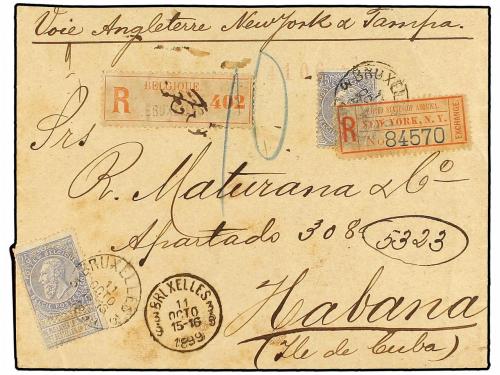 Voie Angleterre New York & Tampa.
BELGIQUE
R
402
BRUXELLES
UNITED STATES OF AMERICA.
R
NEW YORK, N.Y.
No. 84570
EXCHANGE
Srs
R. Maturana & Co
Apartado 308
5323
BRUXELLES
11
OCTO
BRUXELLES
11
OCTO
15-16
1899
Habana
(Ile de Cuba)